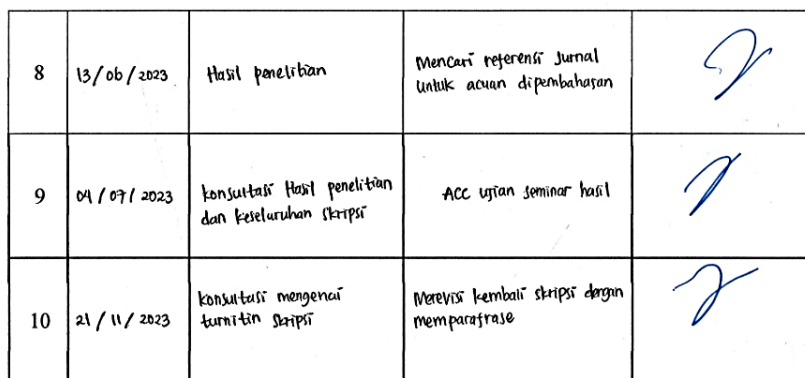 8
13/06/2023
Hasil penelitian
Mencari referensi Jurnal
untuk acuan dipembahasan
9
04/07/2023
konsultasi Hasil penelitian
dan keseluruhan skripsi
ACC ujian seminar hasil
10
21/11/2023
konsultasi mengenai
turnitin skripsi
Merevisi kembali skripsi dengan
memparafrase